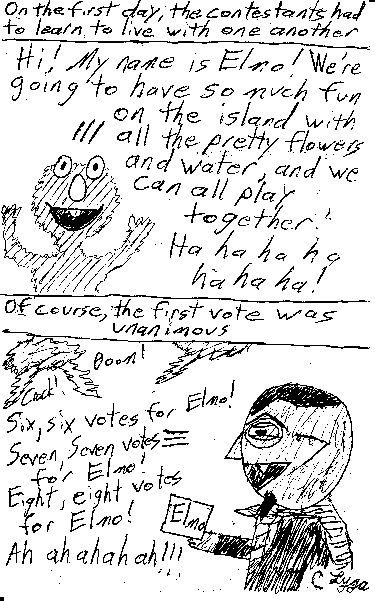 On the first day, the contestants had
to learn to live with one another
Hi! My name is Elmo! We're
going to have so much fun
on the island with
all the pretty flowers
and water, and we
can all play
together!
Ha ha ha ha
ha ha ha!
Of course, the first vote was
unanimous
Boom!
Crack!
Six, six votes for Elmo!
Seven, Seven votes
for Elmo!
Eight, eight votes
for Elmo!
Elmo
Ah ah ah ah ah!!!